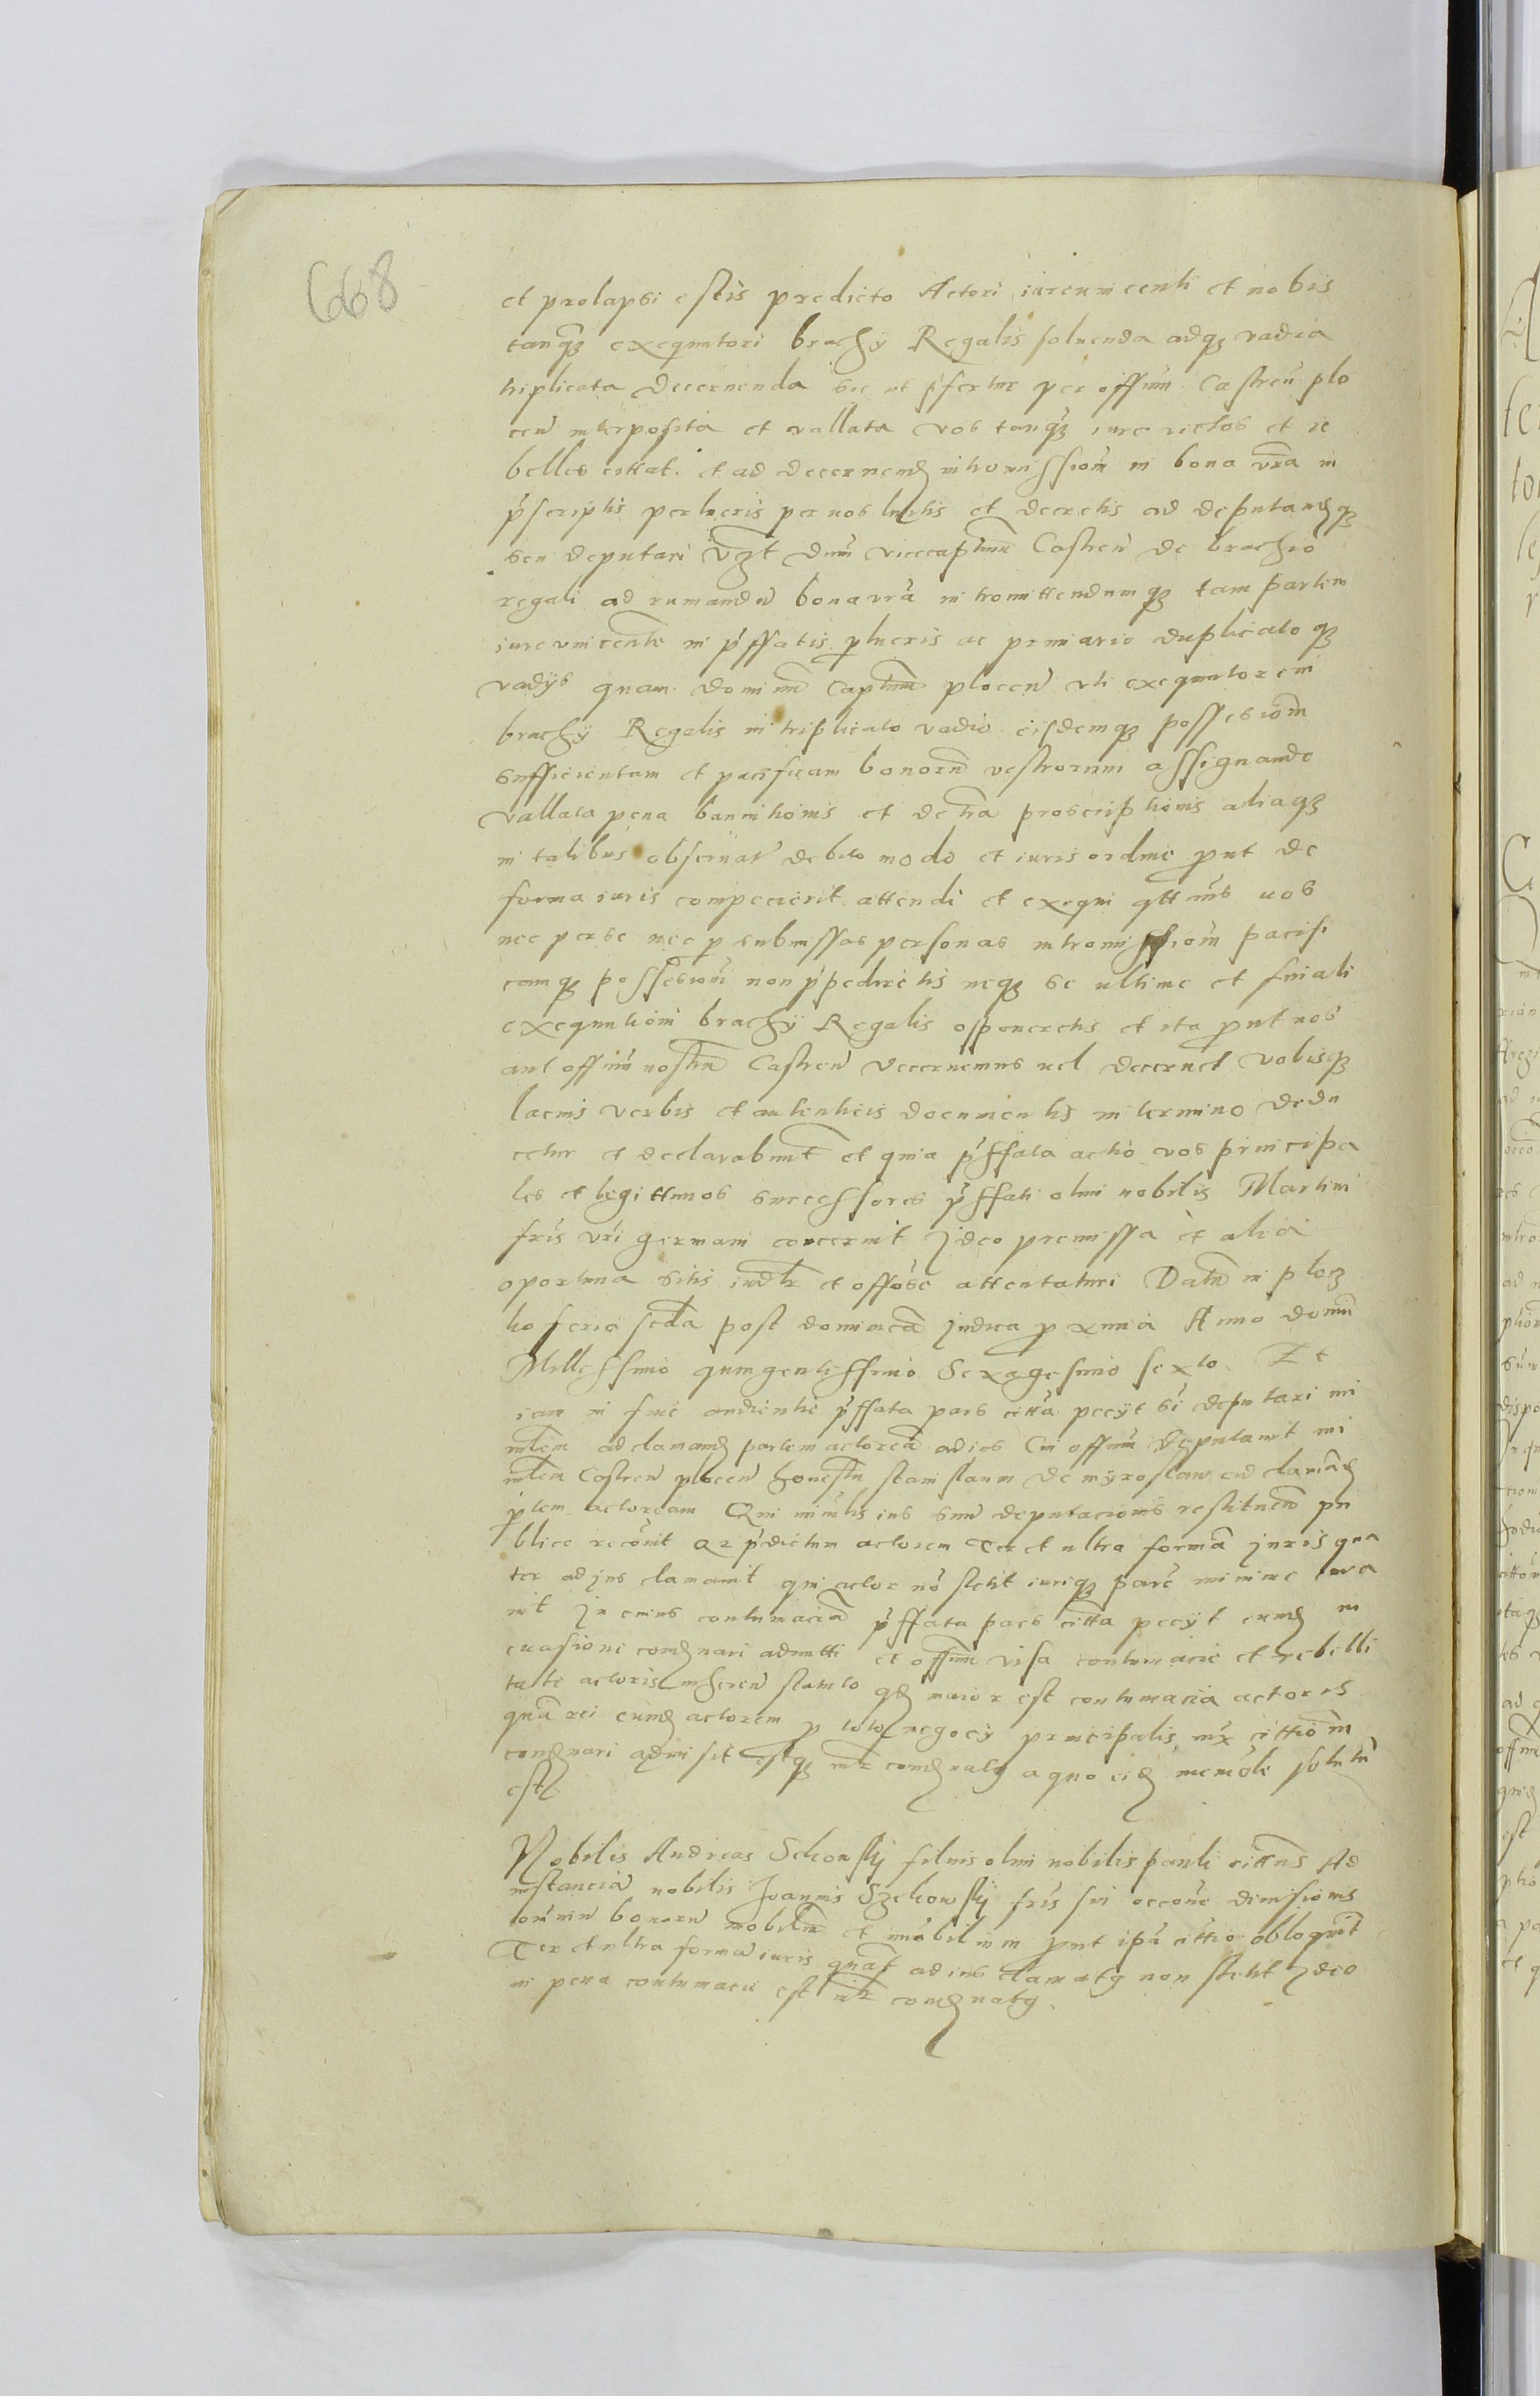 668
et prolapsi estis predicto Actori iureuincenti et nobis
tanq3 exequutori brachy Regalis soluenda adq3 vadia
triplicata decernenda sic ut pfertur per offium Castren plo
cen interposita et vallata vos tanq3 iure victos et re
belles cittat. et ad decernend intromissiom in bona vra in
pscriptis perlucris per nos luctis et decretis ad deputandq3
seu deputari vzt dnm vicecaptnm Castren de brachio
regali ad rumandu bona vra intromittendumq3 tam partem
iure vincente in pffatis plucris ac primario duplicatoq3
vadys quam dominu captnm plocen vti exequutorem
brachy Regalis in triplicato vadio eisdemq3 possesiom
sufficientem et pacificam bonoru vestrorum assignande
vallata pena bannitionis et detra proscriptionis aliaq3
in talibus obseruat debito modo et iuris ordine put de
forma iuris compecierit attendi et exequi qttnus uos
nec per se nec p submissas personas intromissiom pacifi
camq3 possesiom non ppedietis neq3 se ultime et finali
exequutioni brachy Regalis opponeretis et ita put nos
aut offium nostru Castren decernemus uel decernet vobisq3
lacius verbis et autenticis documentis in termino dedu
cetur et declarabunt et quia pffata actio vos principa
les et legittimos successores pffati olim nobilis Martini
fris vri germani concernit Ideo premissa et alia
oportuna sitis iudlr et offose attentaturi Datu in ploc3
ko feria scda post dominica Judica pxima Anno domini
Millessimo quingentessimo Sexagesimo sexto Et
iam in fine audientie pffata pars citta pecyt si deputari mi
nlem ad clamand partem actorea ad ius Cui offium deputauit mi
nlem Castren plocen honestu stanislaum de myroslaw ad clamad
ptem actoream Qui minlis ius sum deputacionis restituend pu
blice recouit Qz pdictum actorem Ter et ultra forma juris qua
ter ad jus clamauit qui actor no stetit iuriq3 pare minime cura
uit In cuius contumacia pffata pars citta pecyt eumd in
euasione comdnari admitti et offium visa contumacie et rebelli
tate actoris inheren statuto qd maior est contumacia actoris
qua rei eumd actorem p toto negocy principalis nx cittiom
comdnari admisit estq3 nlr comdnatg a quo eid memole solutu
est
Nobilis Andreas Sekowsky filius olim nobilis pauli cittns Ad
instancia nobilis Joannis Szekowsky fris sui occone diuisionis
omniu bonoru mobiliu et imobilium put ipa cittio obloquit
Ter et ultra forma iuris quat ad ius clamatg non stetit Ideo
in pena contumacie est nlr comdnatg.